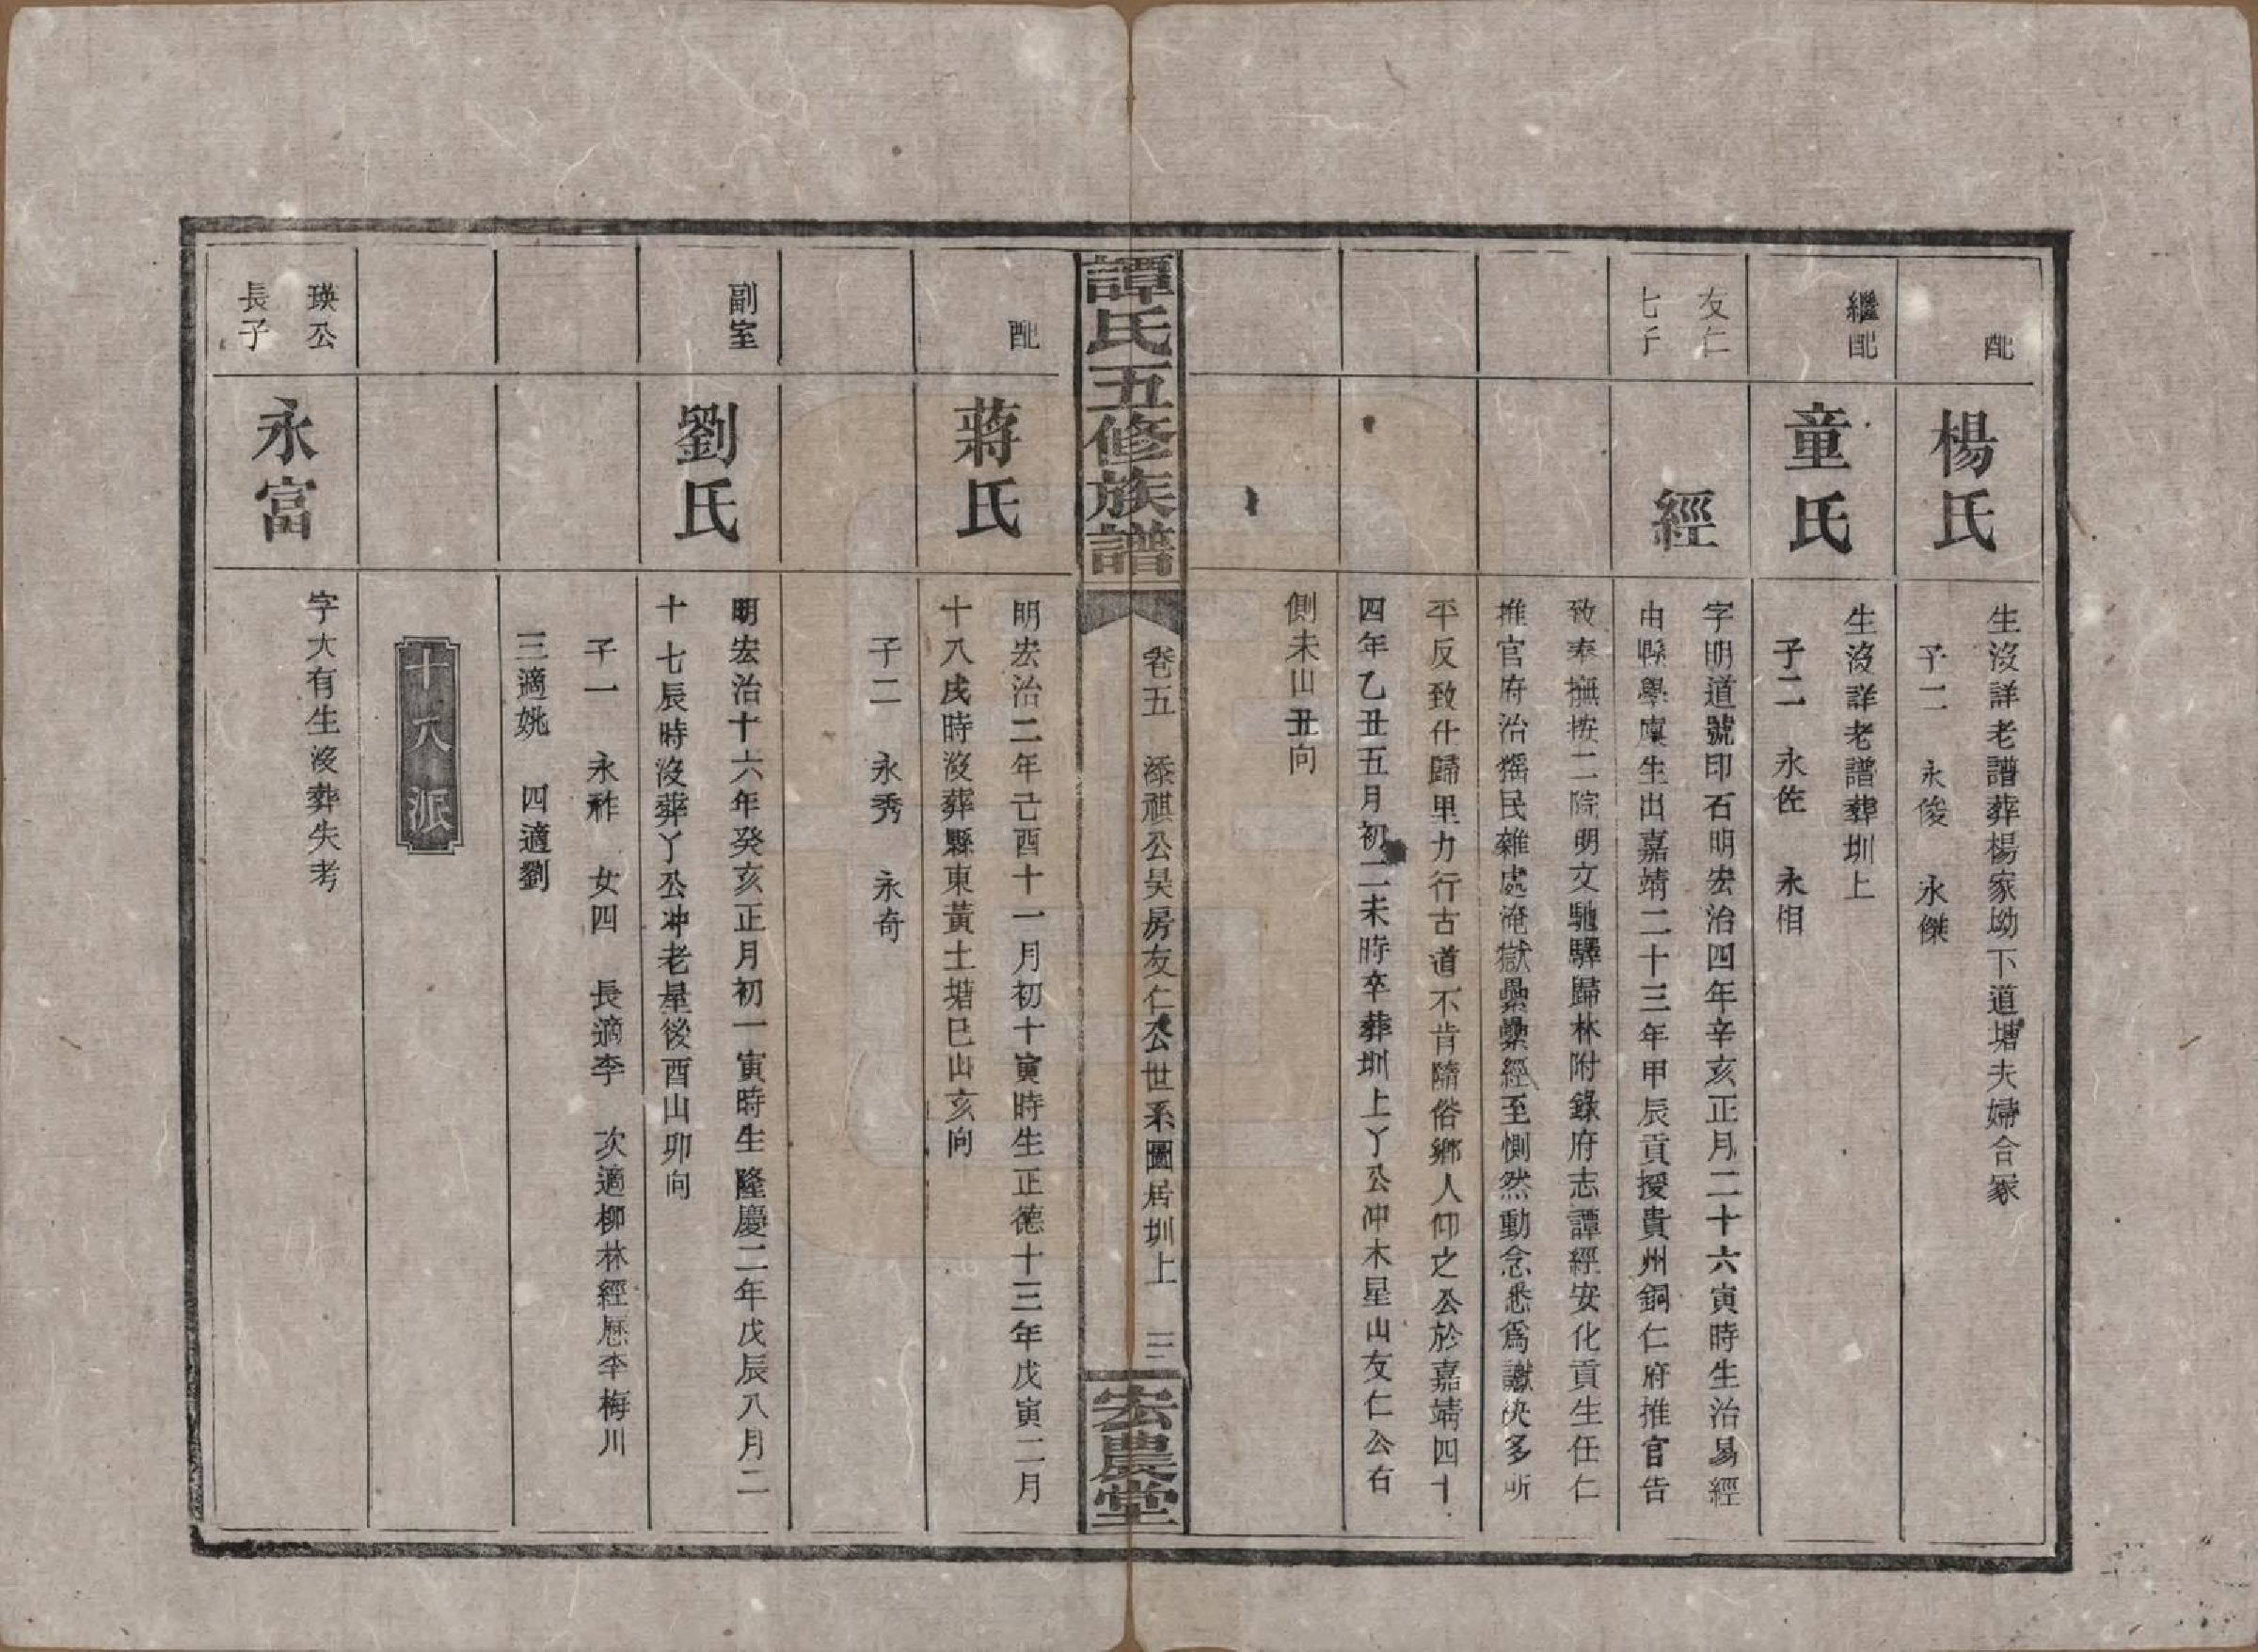 配
楊氏
生沒詳老譜葬楊家坳下道塘夫婦合冢
子二　永俊　永傑
繼配
童氏
生沒詳老譜葬圳上
子二　永佐　永相
友仁
七子
經
字明道號印石明宏治四年辛亥正月二十六寅時生治易經
由縣學廩生出嘉靖二十三年甲辰貢授貴州銅仁府推官告
致奉撫按二院明文馳驛歸林附錄府志譚經安化貢生任仁
推官府治猺民雜處淹獄纍纍經至惻然動念悉爲讞決多所
平反致仕歸里力行古道不肯隨俗鄉人仰之公於嘉靖四十
四年乙丑五月初二未時卒葬圳上丫公冲木星山友仁公右
側未山丑向
譚氏五修族譜
卷五　添祺公昊房友仁公世系圖居圳上　三
宏農堂
配
蔣氏
明宏治二年己酉十一月初十寅時生正德十三年戊寅二月
十八戌時沒葬縣東黃土塘巳山亥向
子二　永秀　永奇
副室
劉氏
明宏治十六年癸亥正月初一寅時生隆慶二年戊辰八月二
十七辰時沒葬丫公冲老屋後酉山卯向
子一　永祚　女四　長適李　次適柳林經歷李梅川
三適姚　四適劉
十八派
瑛公
長子
永富
字大有生沒葬失考